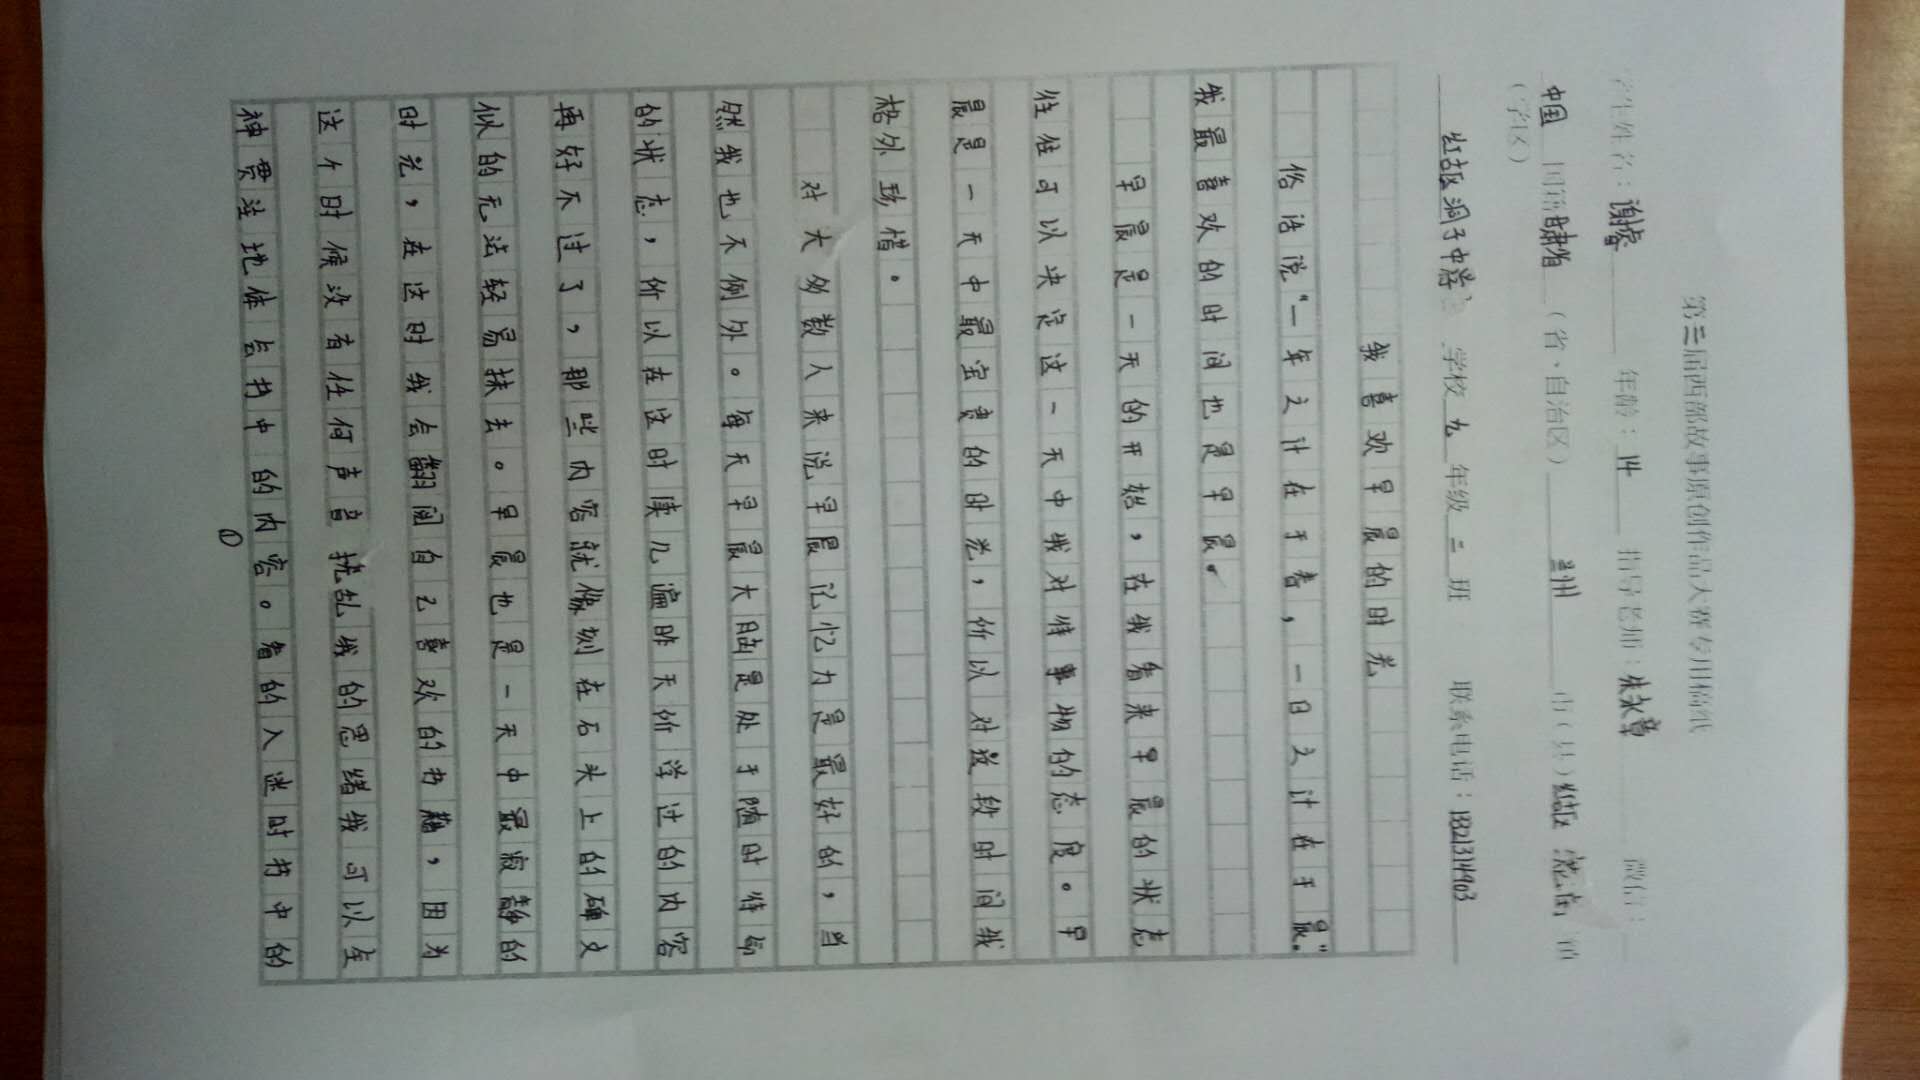 第三届西部故事原创作品大赛专用稿纸
学生姓名：谢睿 年龄：14 指导老师：朱永章 微信：
中国 国籍 甘肃省（省、自治区） 兰州 市（县）红古区 窑街 镇
（学区）
红古区洞子中学 学校 九 年级 二 班 联系电话：
我喜欢早晨的时光
俗话说“一年之计在于春，一日之计在于晨。”
我最喜欢的时间也是早晨。
早晨是一天的开始，在我看来早晨的状态
往往可以决定这一天中我对待事物的态度。早
晨是一天中最宝贵的时光，所以对这段时间我
格外珍惜。
对大多数人来说早晨记忆力是最好的，当
然我也不例外。每天早晨大脑是处于随时待命
的状态，所以在这时读几遍昨天所学过的内容
再好不过了，那些内容就像刻在石头上的碑文
似的无法轻易抹去。早晨也是一天中最寂静的
时光，在这时我会翻阅自己喜欢的书籍，因为
这个时候没有任何声音扰乱我的思绪我可以全
神贯注地体会书中的内容。看的入迷时书中的
①